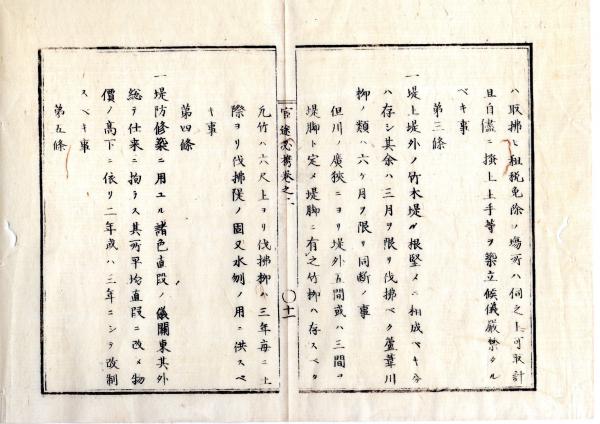 ハ取拂ヒ租税免除ノ場所ハ伺之上可取計
且自儘ニ攩上上手等ヲ築立候儀嚴禁タル
ベキ事
第三條
一堤上堤外ノ竹木堤ガ根堅メニ相成ベキ分
ハ存シ其余ハ三月ヲ限リ伐拂ベク蘆葦川
柳ノ類ハ六ケ月ヲ限リ同断ノ事
但川ノ廣狹ニヨリ堤外五間或ハ三間ヲ
堤脚ト定メ堤脚ニ有之竹柳ハ存スベク
官途必携巻之一
〇十一
尤竹ハ六尺上ヨリ伐拂柳ハ三年毎ニ上
際ヨリ伐拂堤ノ固又水刎ノ用ニ洪スベ
キ事
第四條
一堤防修築ニ用ユル諸色直段ノ儀關東其外
総テ仕来ニ拘ラス其所平均直段ニ改メ物
價ノ高下ニ依リ二年或ハ三年ニシテ改制
スベキ事
第五條